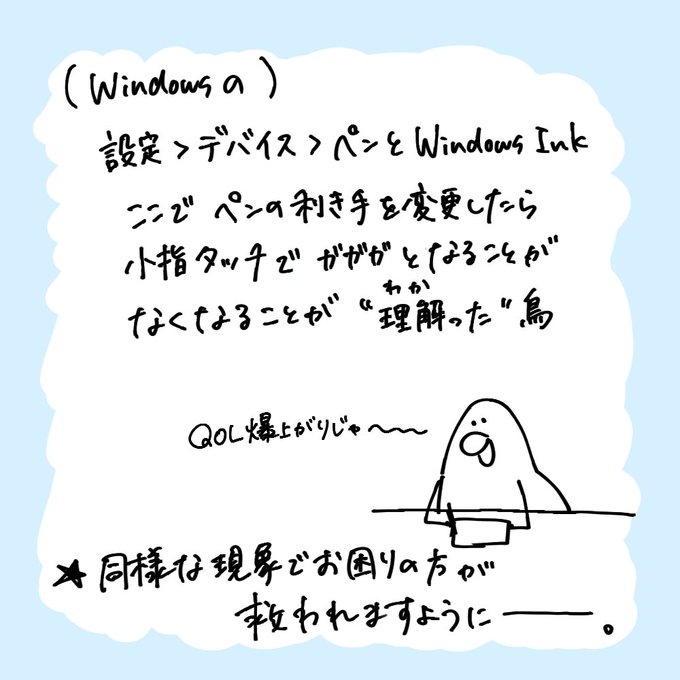 (Windowsの)
設定>デバイス>ペンとWindows Ink
ここでペンの利き手を変更したら
小指タッチでガガガとなることが
わか
なくなることが“理解った”鳥
QOL爆上がりじゃ〜〜〜
★同様な現象でお困りの方が
救われますように――。